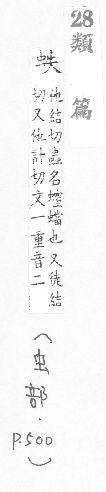 28類 篇
蛈
他結切蟲名螲蟷也又徒結
切又他計切文一重音二
(虫部.
P.500)